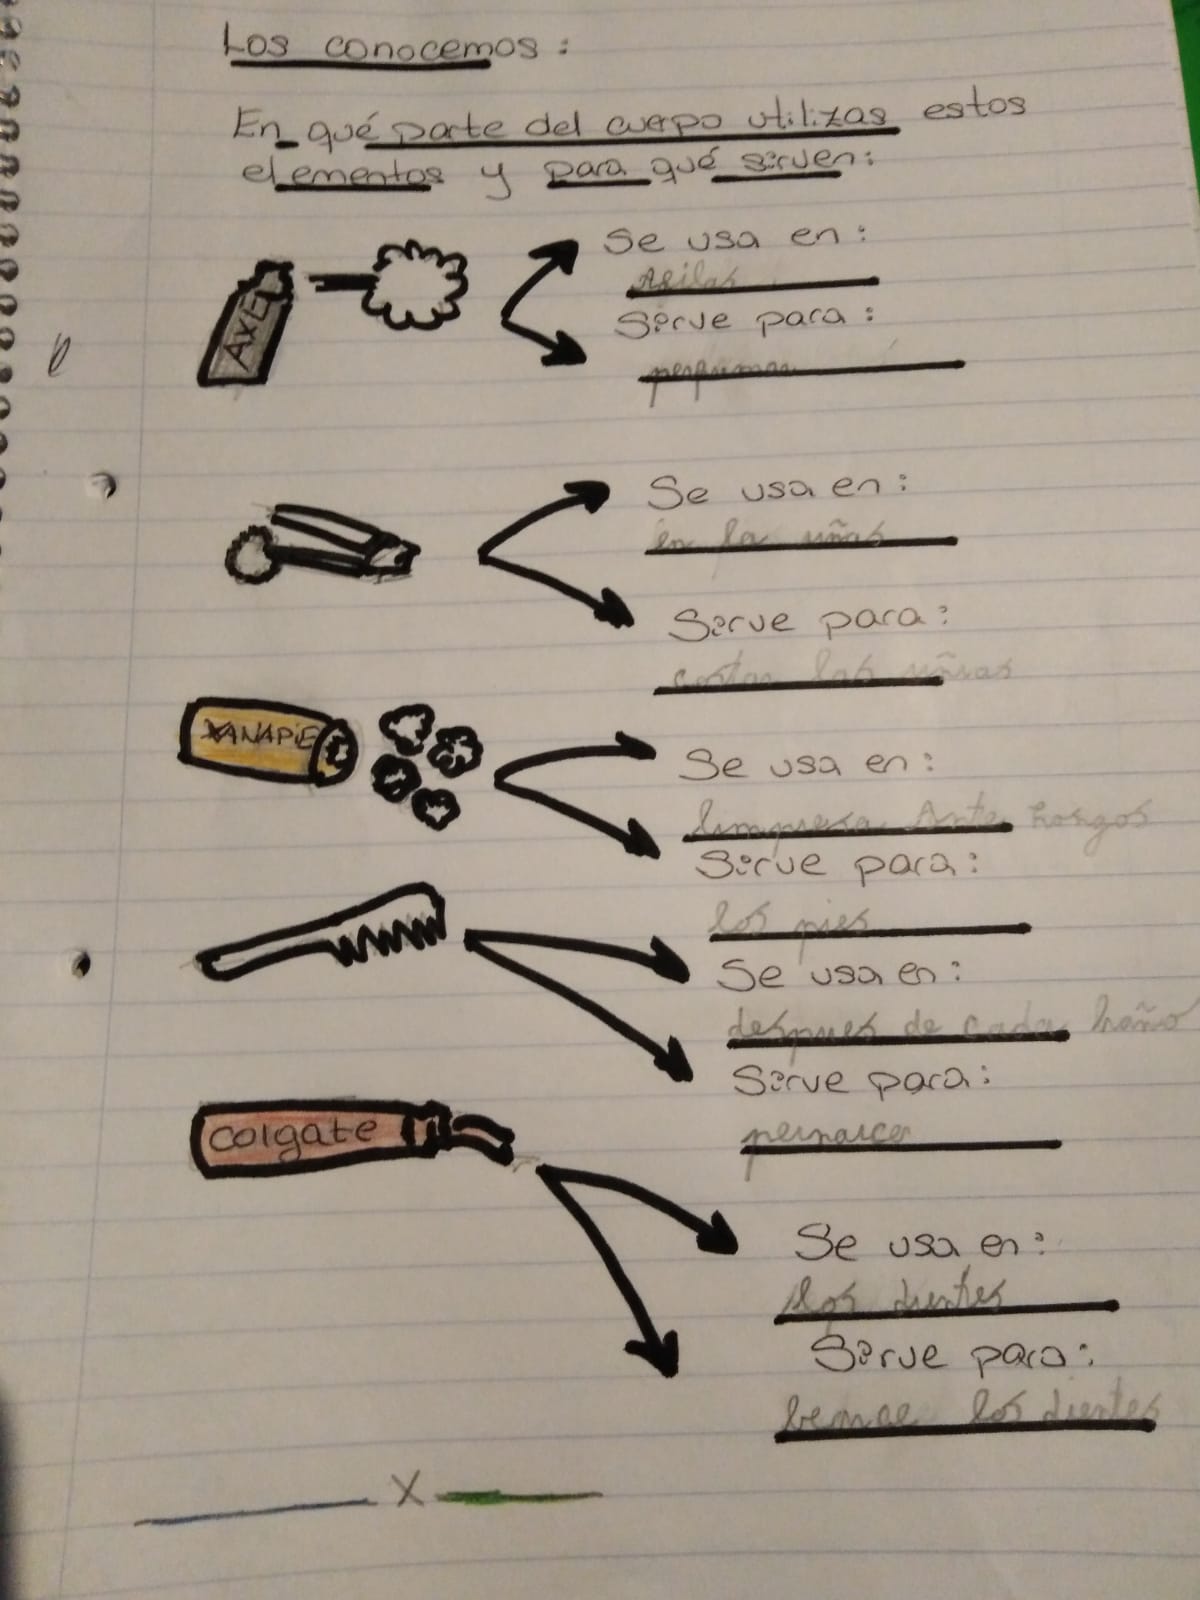 Los conocemos:
En qué parte del cuerpo utilizas estos
elementos y para qué sirven:
AXE
Se usa en:
Axilas
Sirve para:
perfumar
Se usa en:
en la uñas
Sirve para:
cortar las uñas
XANAPIE
Se usa en:
limpiesa Ante hongos
Sirve para:
los pies
Se usa en:
despues de cada baño
Sirve para:
Colgate
Se usa en:
los dientes
Sirve para:
los dientes
X